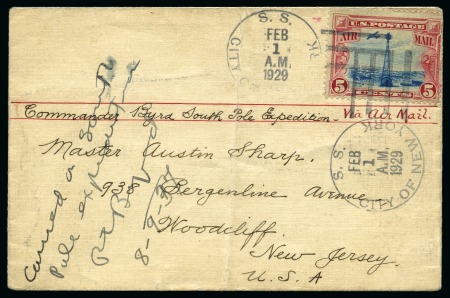 S. S.
CITY
RK
FEB
1
A.M.
1929
U.S. POSTAGE
AIR MAIL
5 CENTS 5
Commander Byrd South Pole Expedition. Via Air Mail.
S. S.
CITY OF NEW YORK
FEB
1
A.M.
1929
Master Austin Sharp.
938 Bergenline Avenue
Woodcliff.
New Jersey.
U.S.A
Carried on South
Pole expedition
8-9-